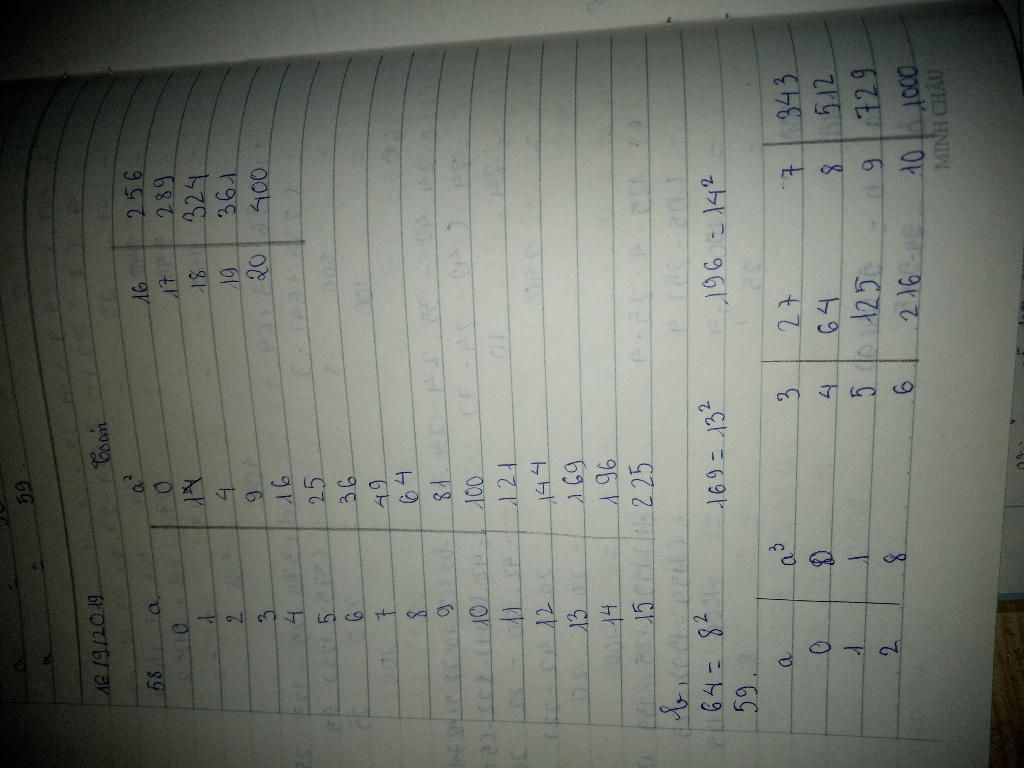 59.
16/9/2019 Toán
58. a a² 16 256
0 0 17 289
1 1 18 324
2 4 19 361
3 9 20 400
4 16
5 25
6 36
7 49
8 64
9 81
10 100
11 121
12 144
13 169
14 196
15 225
b,
64 = 8² 169 = 13² 196 = 14²
59.
a a³ 3 27 7 343
0 0 4 64 8 512
1 1 5 125 9 729
2 8 6 216 10 1000
MINH CHÂU